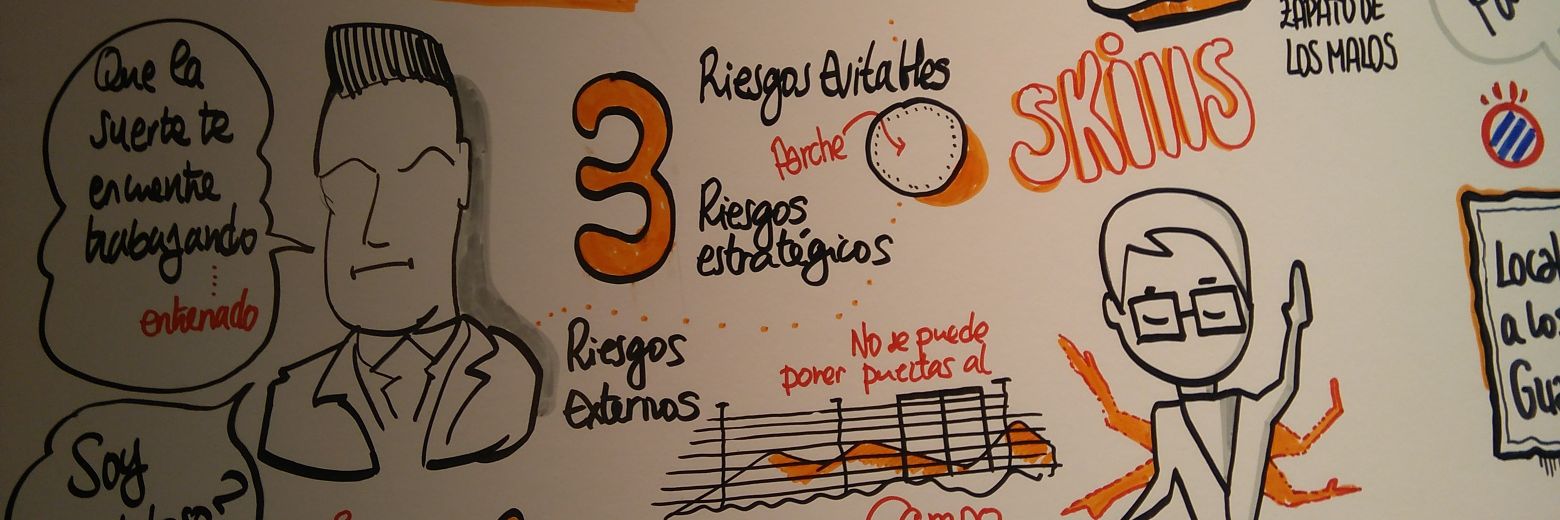 Que la
suerte te
encuentre
trabajando
entrenado
Soy
3
Riesgos Evitables
Parche
Riesgos
estratégicos
Riesgos
Externos
No se puede
poner puertas al
Campo
SKillS
ZAPATO DE
LOS MALOS
Local
a los